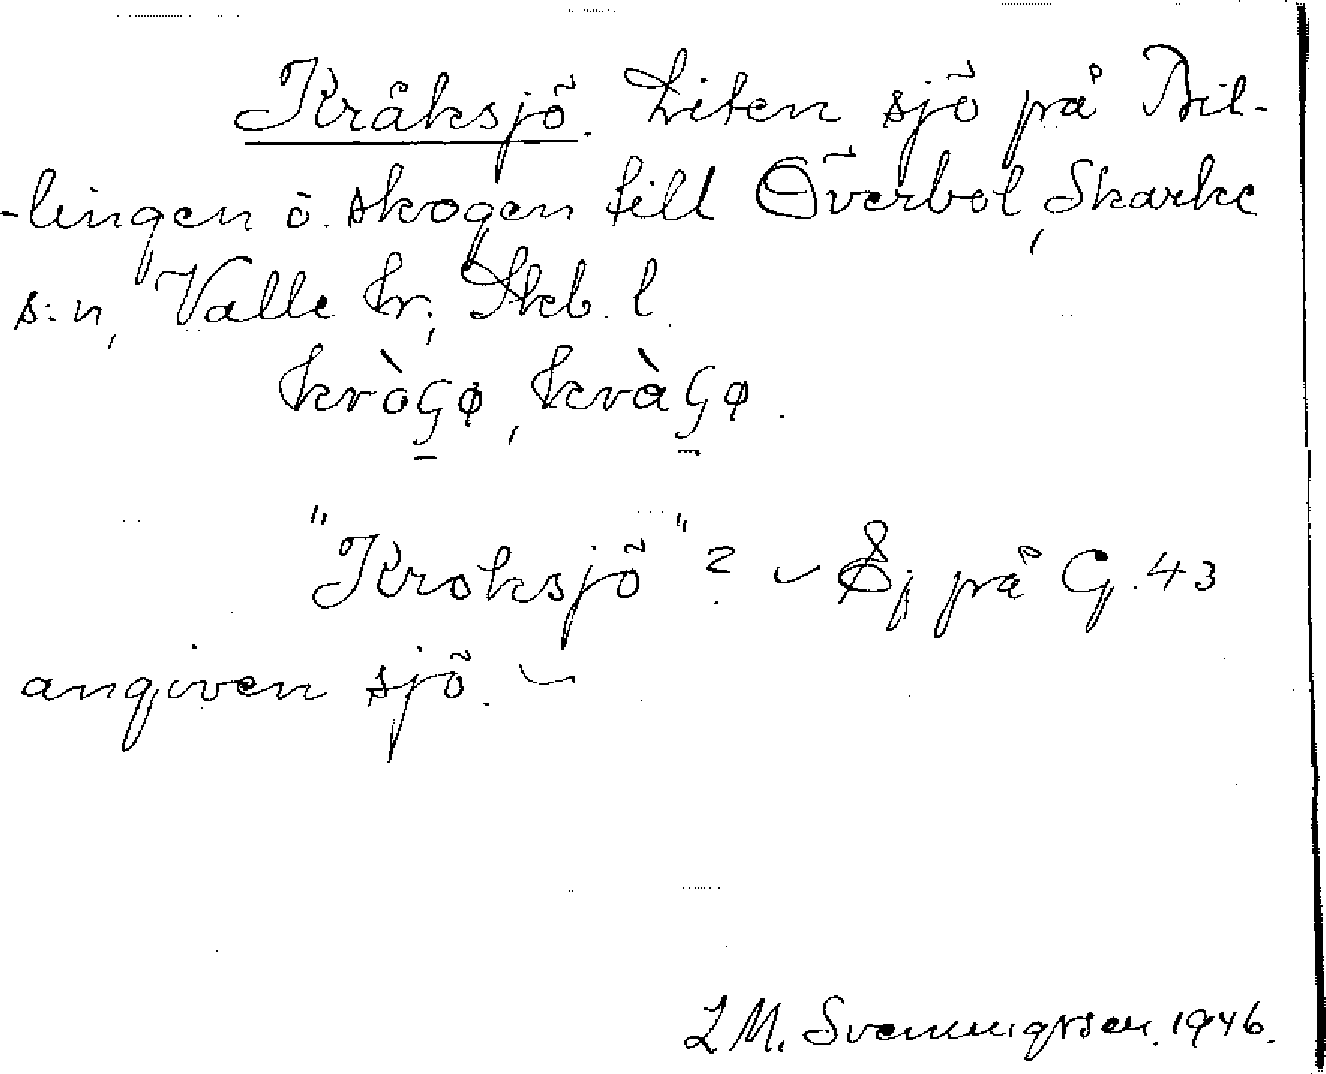 Kråksjö. Liten sjö på Bil-
-lingen ö. skogen till Överbol, Skarke
s:n, Valle hr; Skb. l.
kròGø, kràGø.
"Kroksjö" ? – Ej på G. 43
angiven sjö. –
L M. Svenungsson. 1946.